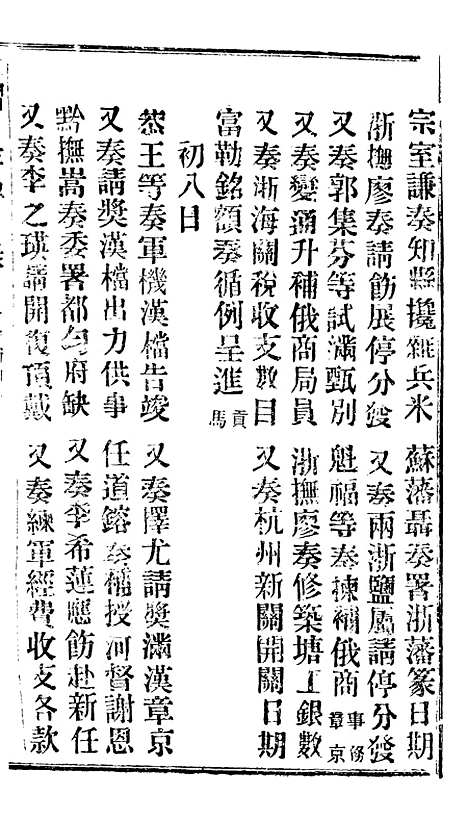 宗室謙奏知縣攙雜兵米　蘇藩聶奏署浙藩篆日期
浙撫廖奏請飭展停分發　又奏兩浙鹽屬請停分發
又奏郭集芬等試滿甄別　魁福等奏揀補俄商事務章京
又奏變通升補俄商局員　浙撫廖奏修築塘工銀數
又奏浙海關稅收支數目　又奏杭州新關開關日期
富勒銘額奏循例呈進貢馬
初八日
恭王等奏軍機漢檔告竣　又奏擇尤請獎滿漢章京
又奏請獎漢檔出力供事　任道鎔奏補授河督謝恩
黔撫嵩奏委署都勻府缺　又奏李希蓮應飭赴新任
又奏李之瑛請開復頂戴　又奏練軍經費收支各款